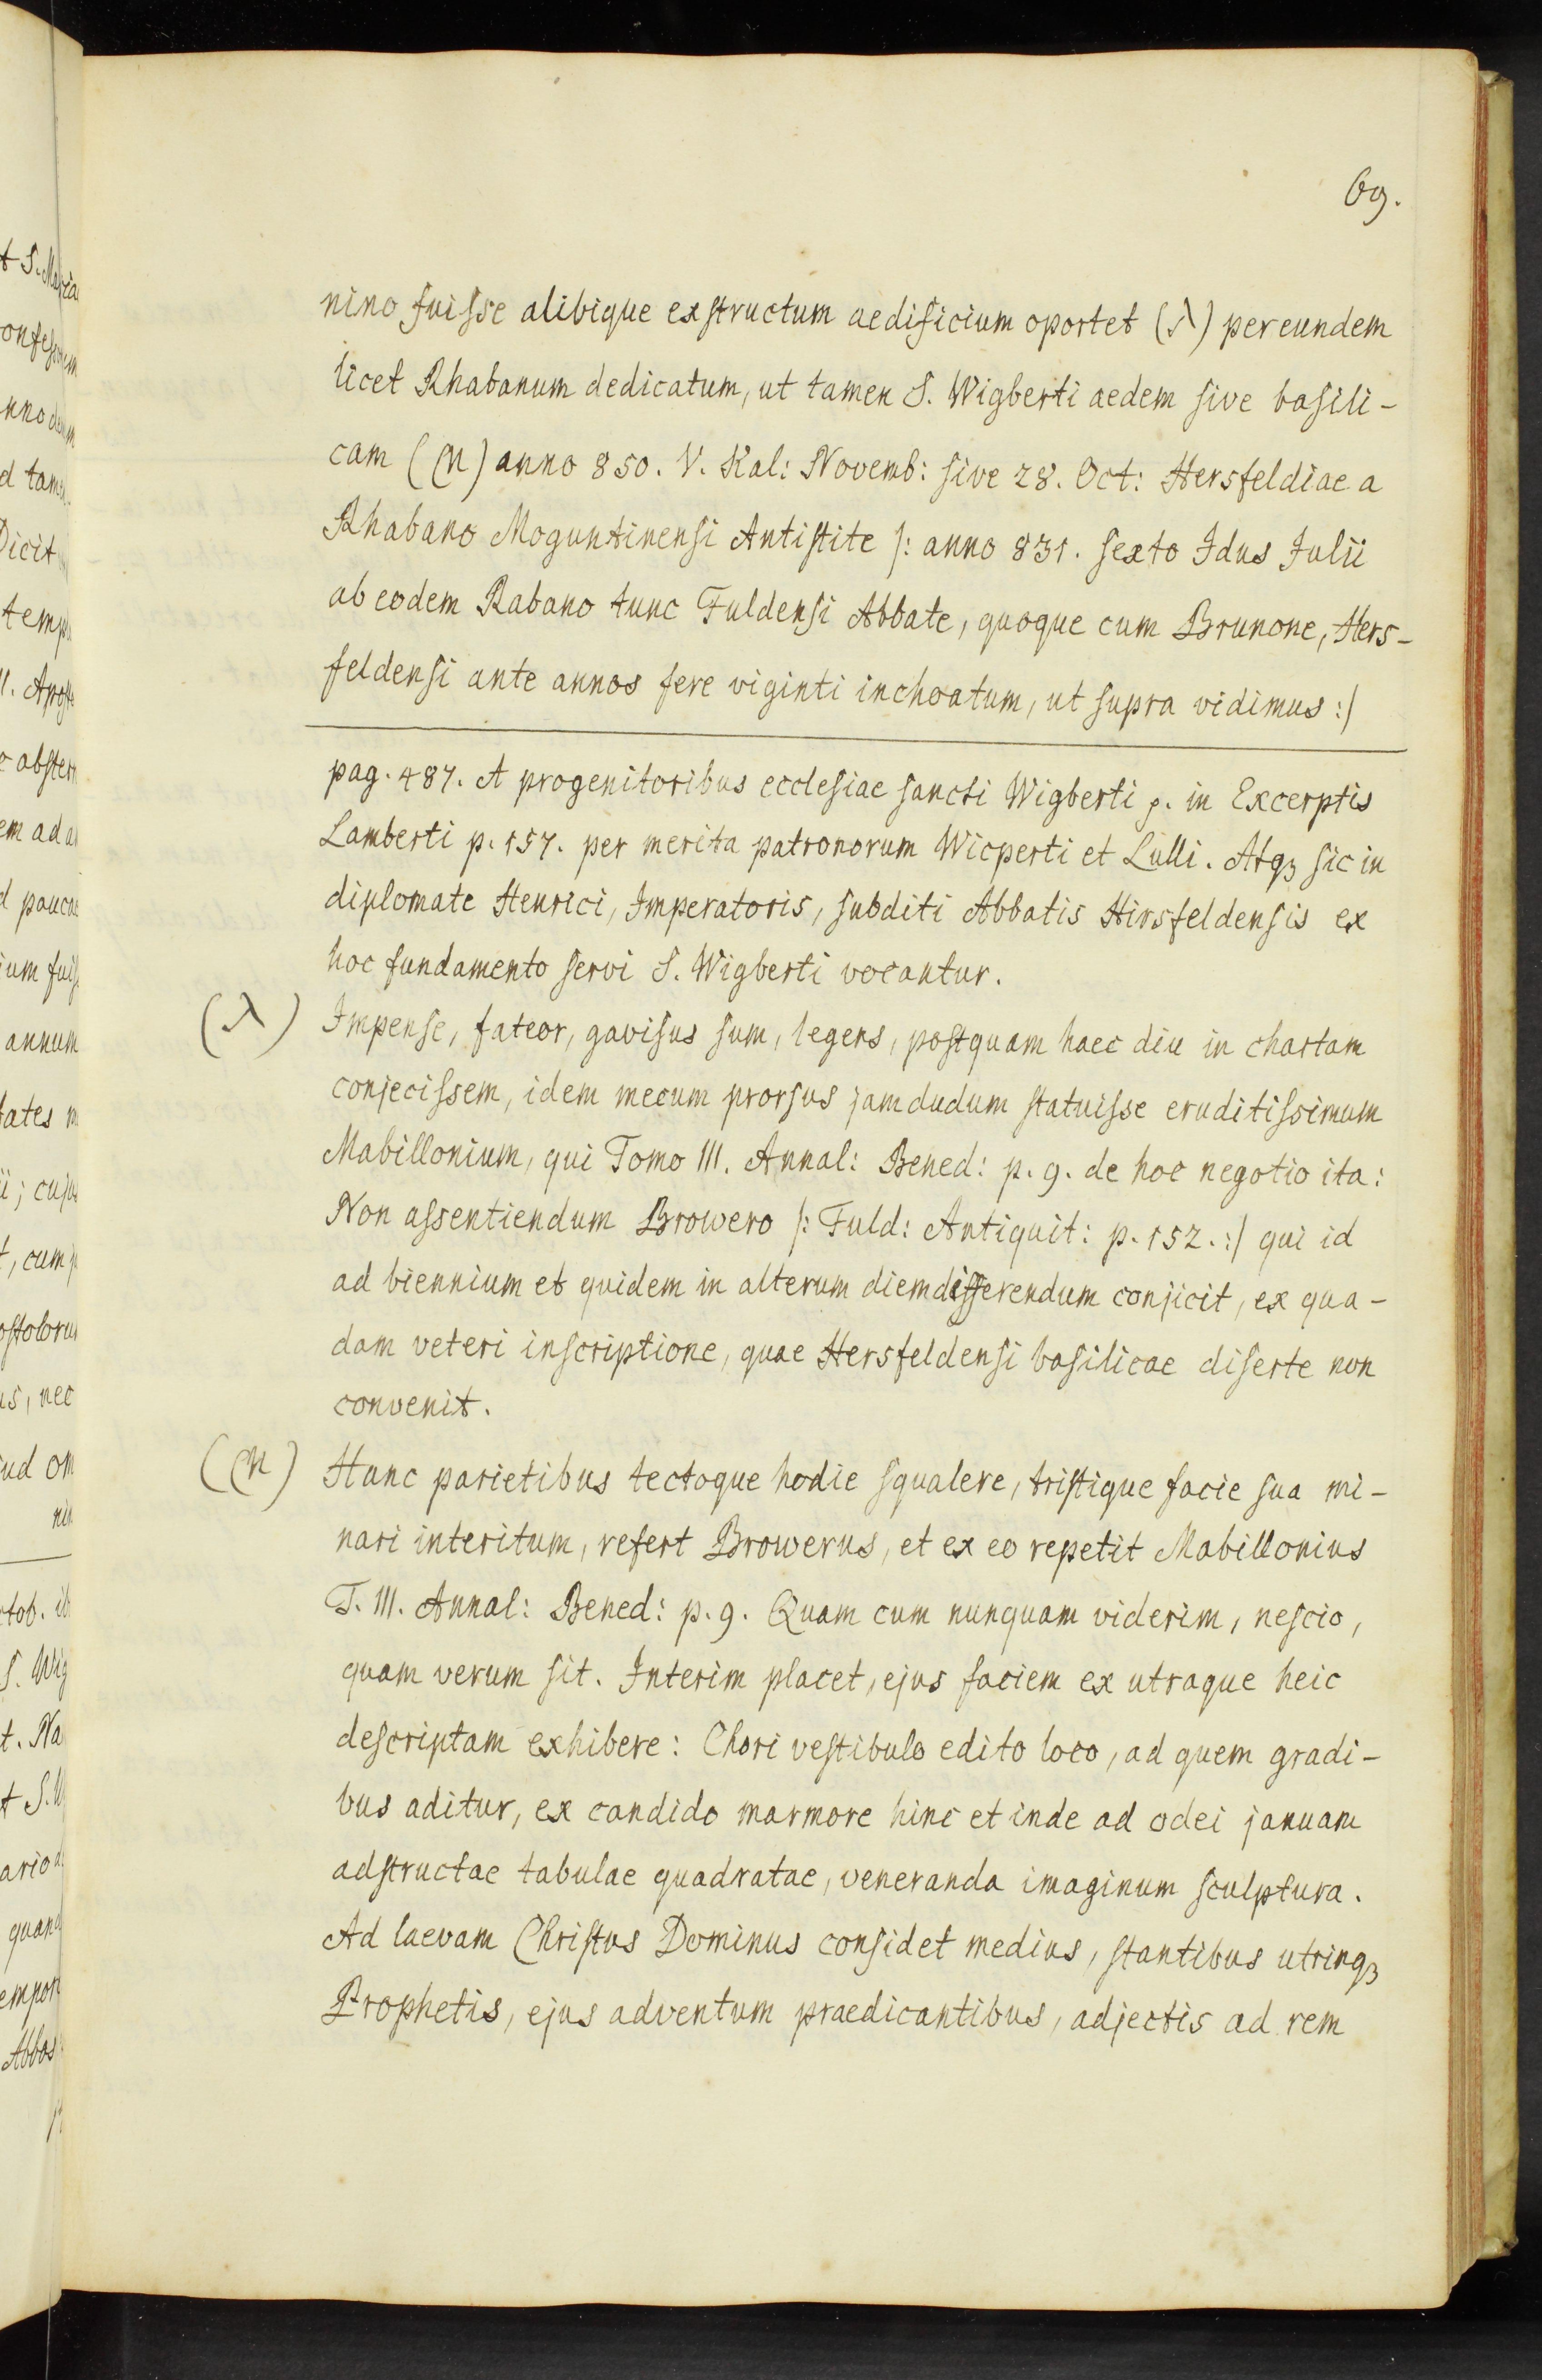 69.
nino fuisse alibique exstructum aedificium oportet (λ) per eundem
licet Rhabanum dedicatum, ut tamen S. Wigberti aedem sive basili-
cam (m) anno 850. V. Kal: Novemb: sive 28. Oct: Hersfeldiae a
Rhabano Moguntinensi Antistite /: anno 831. sexto Idus Julii
ab eodem Rabano tunc Fuldensi Abbate, quoque cum Brunone, Hers-
feldensi ante annos fere viginti inchoatum, ut supra vidimus :/
pag. 487. A progenitoribus ecclesiae sancti Wigberti p. in Excerptis
Lamberti p. 157. per merita patronorum Wicperti et Lulli. Atqꝫ sic in
diplomate Henrici, Imperatoris, subditi Abbatis Hirsfeldensis ex
hoc fundamento servi S. Wigberti vocantur.
(λ) Impense, fateor, gavisus sum, legens, postquam haec diu in chartam
conjecissem, idem mecum prorsus jamdudum statuisse eruditissimum
Mabillonium, qui Tomo III. Annal: Bened: p. 9. de hoc negotio ita:
Non assentiendum Browero /: Fuld: Antiquit: p. 152. :/ qui id
ad biennium et quidem in alterum diem differendum conjicit, ex qua-
dam veteri inscriptione, quae Hersfeldensi basilicae diserte non
convenit.
(m) Hanc parietibus tectoque hodie squalere, tristique facie sua mi-
nari interitum, refert Browerus, et ex eo repetit Mabillonius
T. III. Annal: Bened: p. 9. Quam cum nunquam viderim, nescio,
quam verum sit. Interim placet, ejus faciem ex utraque heic
descriptam exhibere: Chori vestibulo edito loco, ad quem gradi-
bus aditur, ex candido marmore hinc et inde ad odei januam
adstructae tabulae quadratae, veneranda imaginum sculptura.
Ad laevam Christus Dominus considet medius, stantibus utrinqꝫ
Prophetis, ejus adventum praedicantibus, adjectis ad rem